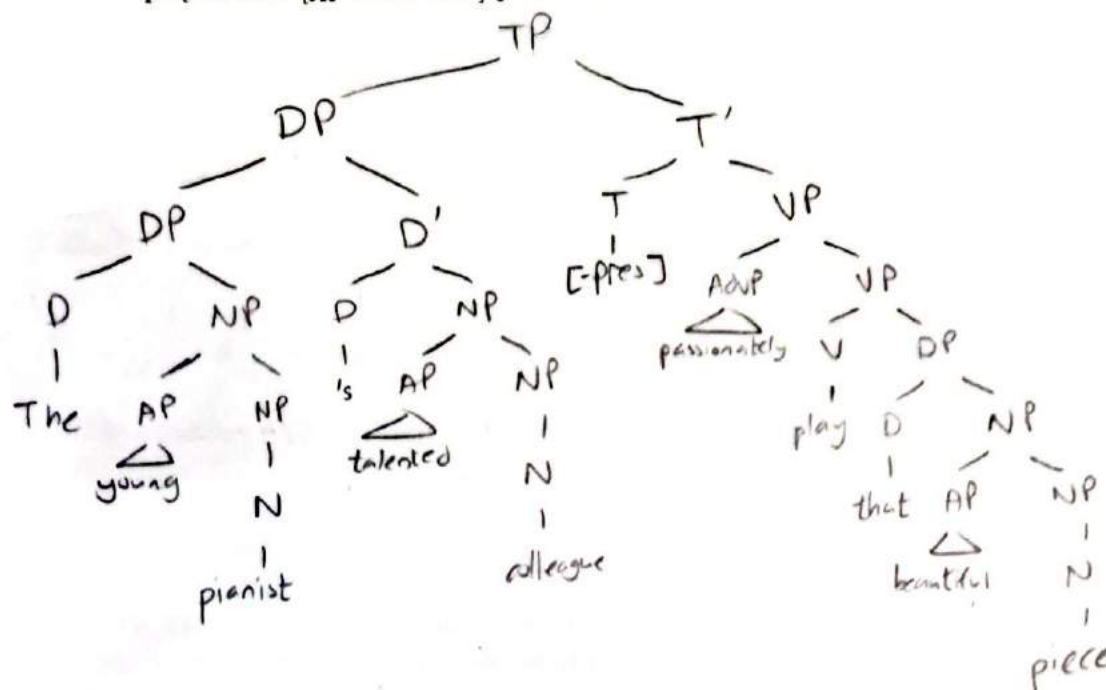 TP
DP T'
DP D' T VP
D NP D NP [-pres] AdvP VP
The AP NP 's AP NP passionately V DP
young N talented N play D NP
pianist colleague that AP NP
beautiful N
piece